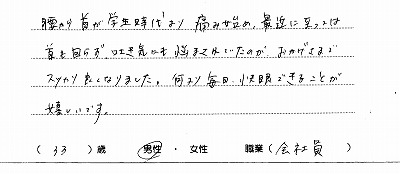 腰から首が学生時代より痛み始め、最近に至っては
首も回らず、吐き気にも悩まされていたのが おかげさまで
スッカリ良くなりました。何より毎日、快眠できることが
嬉しいです。
( 33 ) 歳 男性 ・ 女性 職業 ( 会社員 )